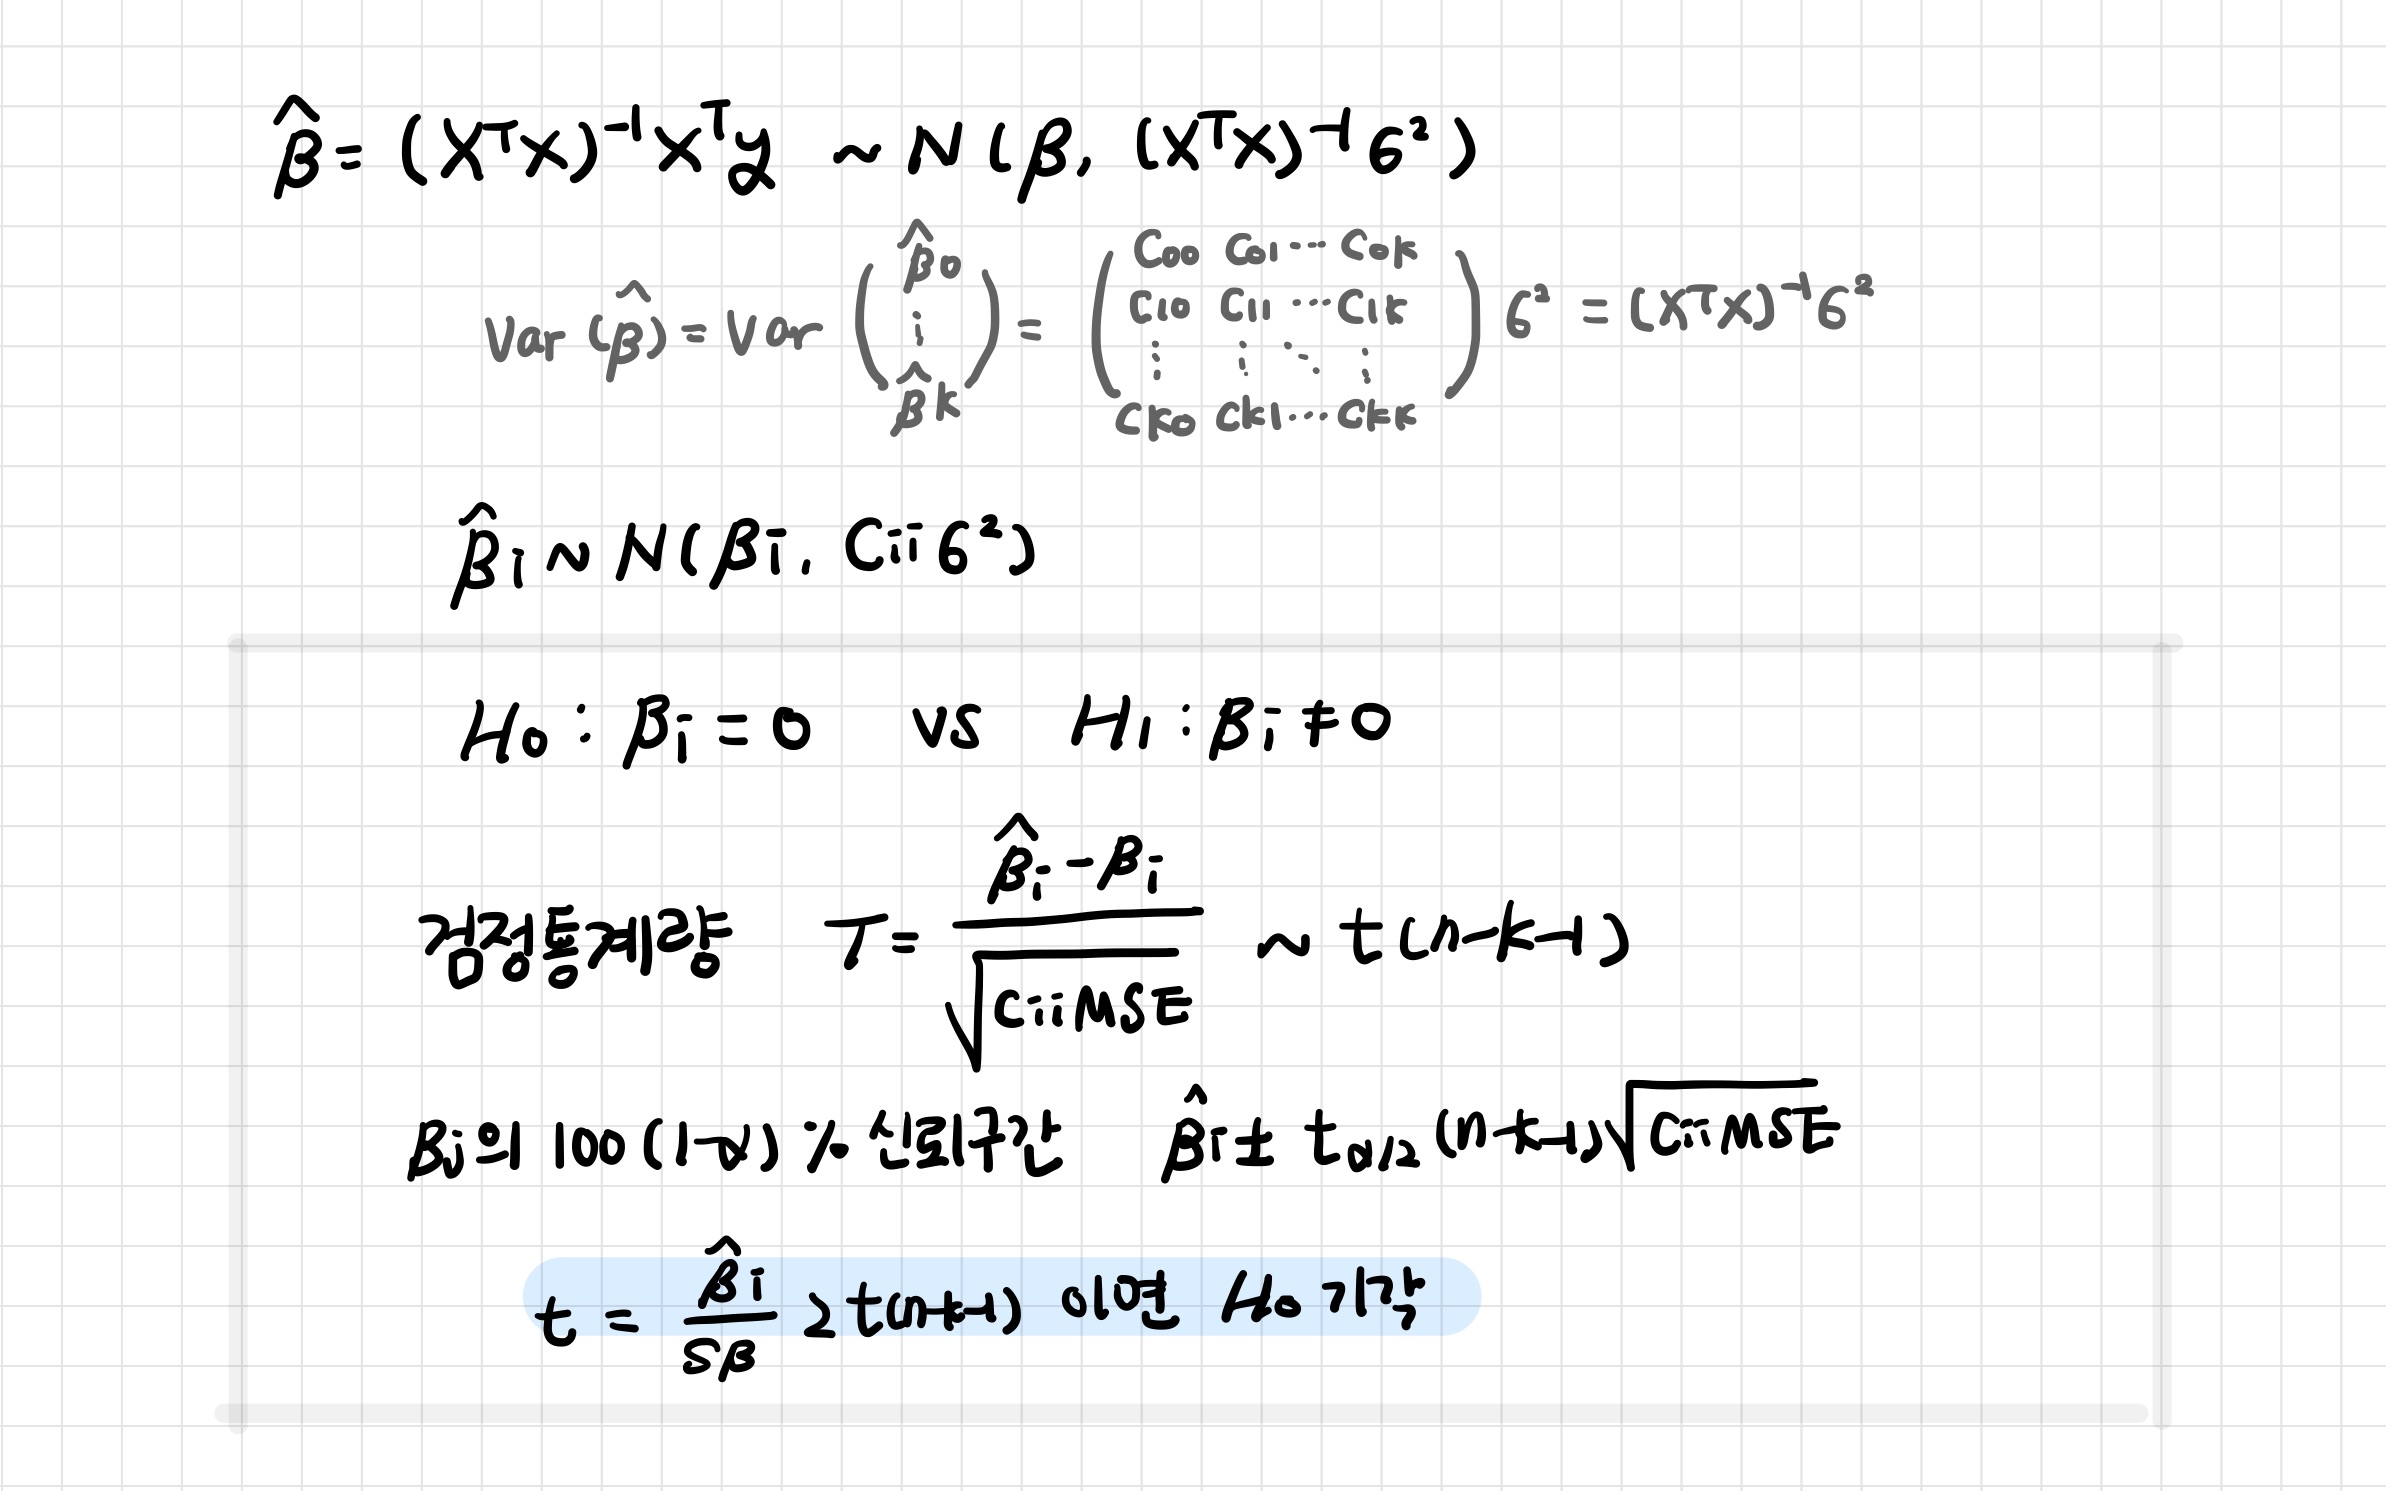 β̂ = (XᵀX)⁻¹Xᵀy ~ N(β, (XᵀX)⁻¹σ²)
Var(β̂) = Var (β̂0 ⋮ β̂k) = (C00 C01 ⋯ C0k
C10 C11 ⋯ C1k
⋮ ⋮ ⋱ ⋮
Ck0 Ck1 ⋯ Ckk) σ² = (XᵀX)⁻¹σ²
β̂i ~ N(βi, Cii σ²)
H0 : βi = 0 vs H1 : βi ≠ 0
검정통계량 T = (β̂i - βi) / √(Cii MSE) ~ t(n-k-1)
βi의 100(1-α)% 신뢰구간 β̂i ± t α/2 (n-k-1)√(Cii MSE)
t = β̂i / sβ ≥ t(n-k-1) 이면 H0 기각